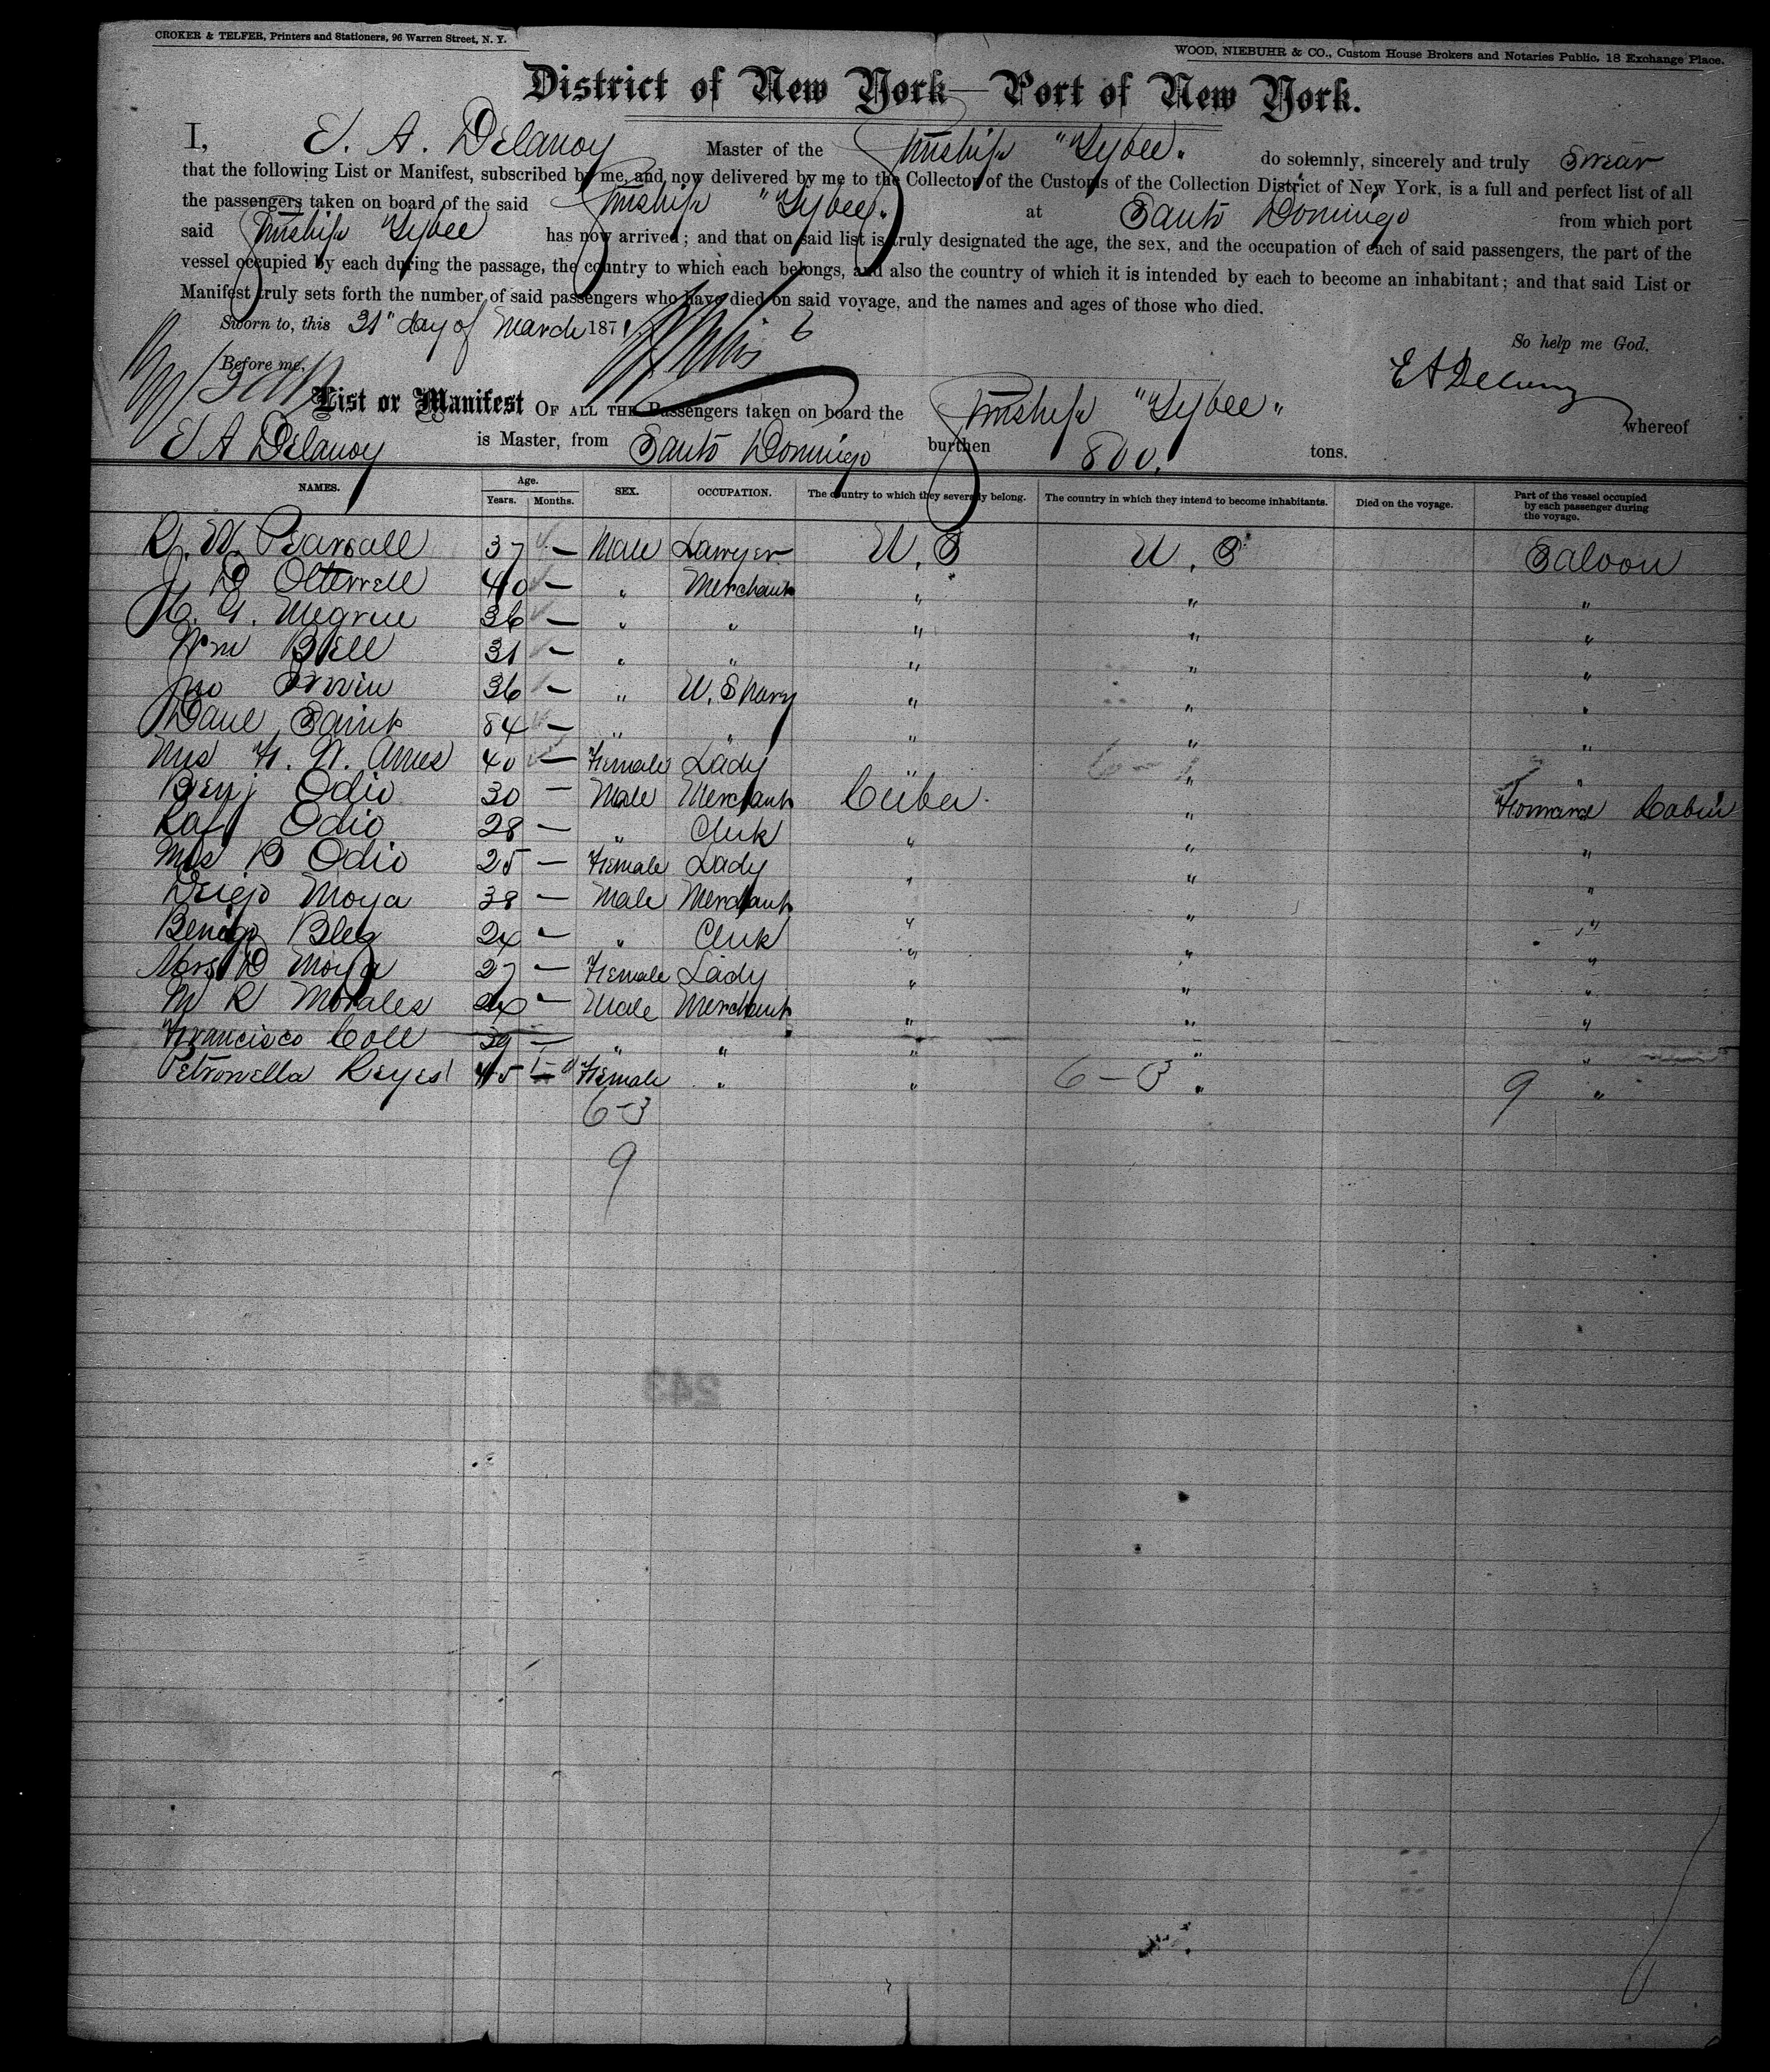 CROKER & TELFER, Printers and Stationers, 96 Warren Street, N. Y.
WOOD, NIEBUHR & CO., Custom House Brokers and Notaries Public, 18 Exchange Place.
District of New York—Port of New York.
I, E. A. Delanoy Master of the Stmship "Tybee" do solemnly, sincerely and truly Swear
that the following List or Manifest, subscribed by me, and now delivered by me to the Collector of the Customs of the Collection District of New York, is a full and perfect list of all
the passengers taken on board of the said Stmship "Tybee" at Santo Domingo from which port
said Stmship "Tybee has now arrived; and that on said list is truly designated the age, the sex, and the occupation of each of said passengers, the part of the
vessel occupied by each during the passage, the country to which each belongs, and also the country of which it is intended by each to become an inhabitant; and that said List or
Manifest truly sets forth the number of said passengers who have died on said voyage, and the names and ages of those who died.
Sworn to, this 31" day of March 1871 6
So help me God.
Before me, E A Delanoy
List or Manifest OF ALL THE Passengers taken on board the Stmship "Tybee" whereof
E A Delanoy is Master, from Santo Domingo burthen 800. tons.
NAMES. Age. Years. Months. SEX. OCCUPATION. The country to which they severally belong. The country in which they intend to become inhabitants. Died on the voyage. Part of the vessel occupied by each passenger during the voyage.
W. Pearsall 37 — Male Lawyer U. S U. S Saloon
D 40 — " Merchant " " "
36 — " " " " "
Wm Bell 31 — " " " " "
Jno Irwin 36 — " U. S Navy " " "
— " " " " "
Mrs F. W. Ames 40 — Female Lady " " "
Benj Odio 30 — Male Merchant Cuba " Forward Cabin
Raf Odio 28 — " Clerk " " "
Mrs B Odio 25 — Female Lady " " "
Diego Moya 38 — Male Merchant " "
Benigo 24 — " Clerk " " "
Mrs D Moya 27 — Female Lady " " "
M R Morales — Male Merchant " " "
Francisco Coll 39 — " " " " "
Petronella Reyes 45 — Female " " 6-3 " 9 "
6-3
9
243